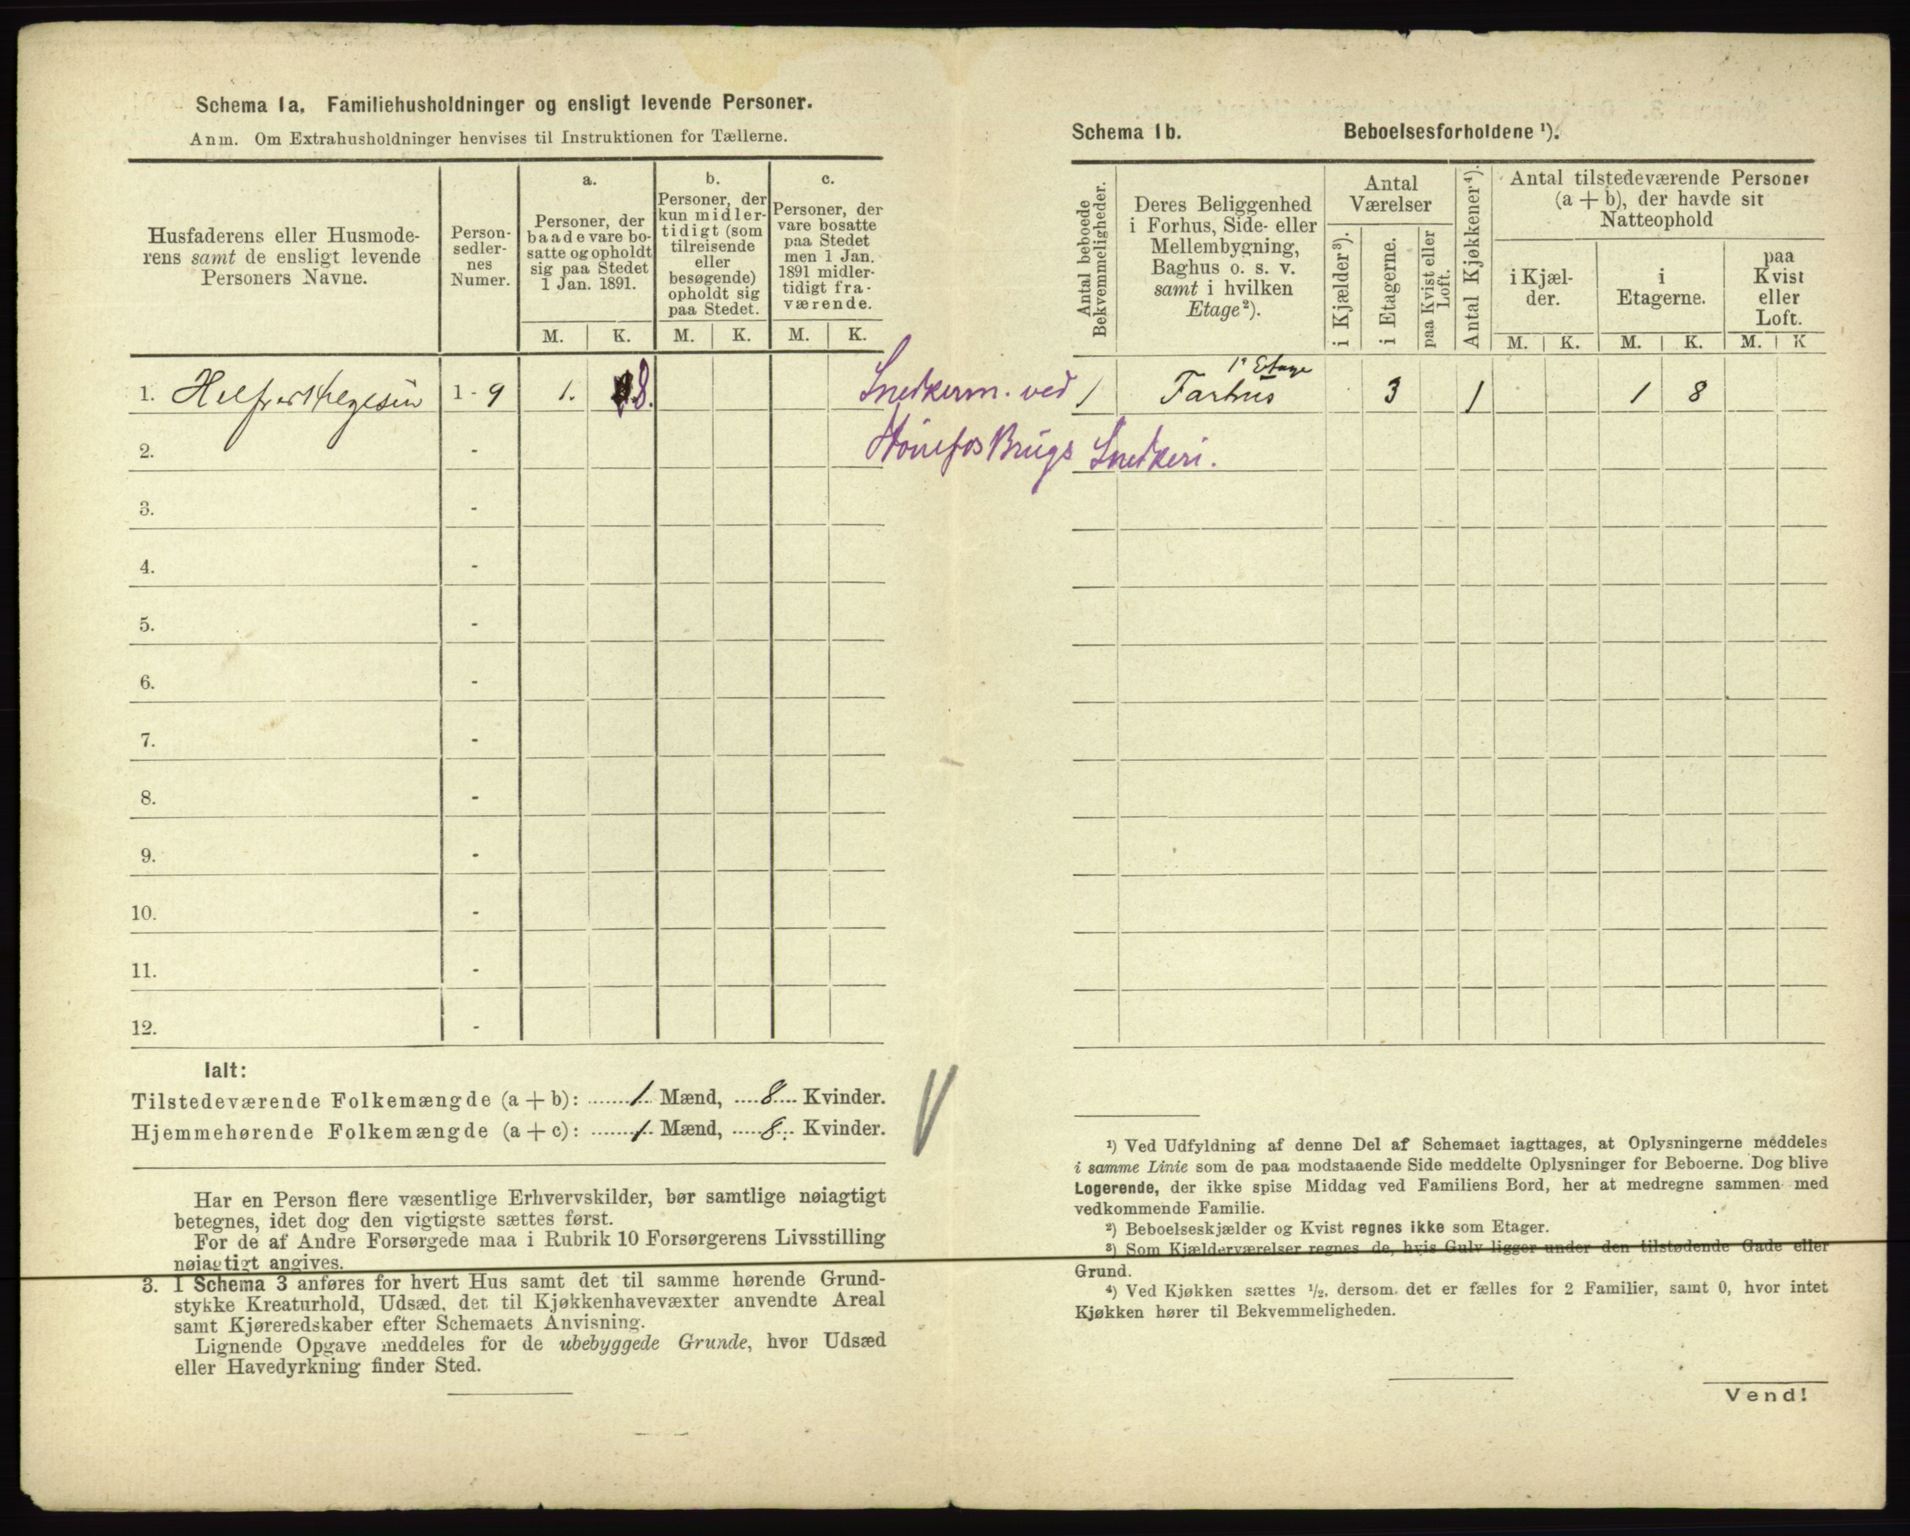 Schema 1a. Familiehusholdninger og ensligt levende Personer.
Anm. Om Extrahusholdninger henvises til Instruktionen for Tællerne.
Husfaderens eller Husmode-
rens samt de ensligt levende
Personers Navne.
Person-
sedler-
nes
Numer.
a.
Personer, der
baade vare bo-
satte og opholdt
sig paa Stedet
1 Jan. 1891.
b.
Personer, der
kun midler-
tidigt (som
tilreisende
eller
besøgende)
opholdt sig
paa Stedet.
c.
Personer, der
vare bosatte
paa Stedet
men 1 Jan.
1891 midler-
tidigt fra-
værende.
M. K. M. K. M. K.
1. 1-9 1. 8.
2. -
3. -
4. -
5. -
6. -
7. -
8. -
9. -
10. -
11. -
12. -
Snedkerm. ved
Hønefos Brugs Snedkeri.
Ialt:
Tilstedeværende Folkemængde (a + b): 1 Mænd, 8 Kvinder.
Hjemmehørende Folkemængde (a + c): 1 Mænd, 8. Kvinder.
Har en Person flere væsentlige Erhvervskilder, bør samtlige nøiagtigt
betegnes, idet dog den vigtigste sættes først.
For de af Andre Forsørgede maa i Rubrik 10 Forsørgerens Livsstilling
nøiagtigt angives.
3. I Schema 3 anføres for hvert Hus samt det til samme hørende Grund-
stykke Kreaturhold, Udsæd, det til Kjøkkenhavevæxter anvendte Areal
samt Kjøreredskaber efter Schemaets Anvisning.
Lignende Opgave meddeles for de ubebyggede Grunde, hvor Udsæd
eller Havedyrkning finder Sted.
Schema 1b. Beboelsesforholdene ¹).
Antal beboede
Bekvemmeligheder.
Deres Beliggenhed
i Forhus, Side- eller
Mellembygning,
Baghus o. s. v.
samt i hvilken
Etage²).
Antal
Værelser
i Kjælder³).
i Etagerne.
paa Kvist eller
Loft.
Antal Kjøkkener⁴).
Antal tilstedeværende Personer
(a + b), der havde sit
Natteophold
i Kjæl-
der.
i
Etagerne.
paa
Kvist
eller
Loft.
M. K. M. K. M. K
1ᵉ Etage
1 Forhus 3 1 1 8
¹) Ved Udfyldning af denne Del af Schemaet iagttages, at Oplysningerne meddeles
i samme Linie som de paa modstaaende Side meddelte Oplysninger for Beboerne. Dog blive
Logerende, der ikke spise Middag ved Familiens Bord, her at medregne sammen med
vedkommende Familie.
²) Beboelseskjælder og Kvist regnes ikke som Etager.
³) Som Kjælderværelser regnes de, hvis Gulv ligger under den tilstødende Gade eller
Grund.
⁴) Ved Kjøkken sættes ½, dersom det er fælles for 2 Familier, samt 0, hvor intet
Kjøkken hører til Bekvemmeligheden.
Vend!